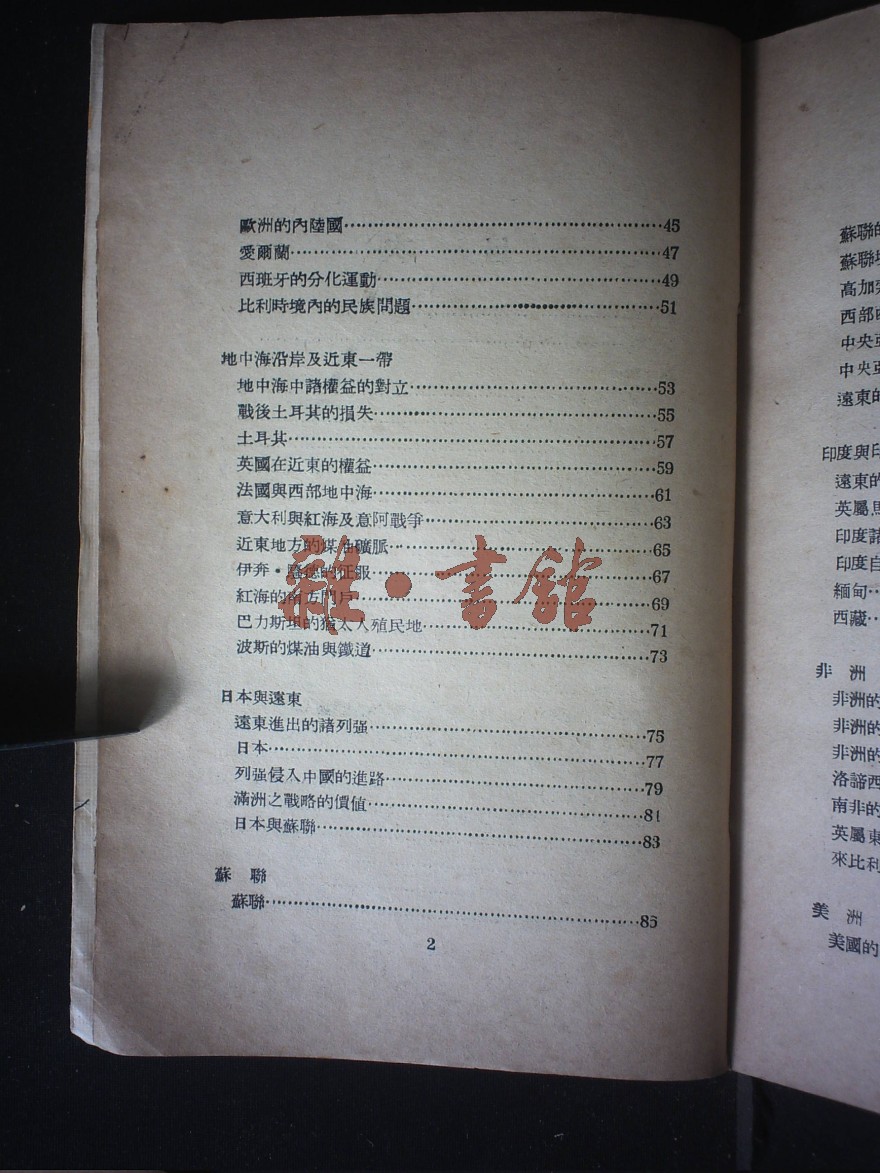 歐洲的內陸國 45
愛爾蘭 47
西班牙的分化運動 49
比利時境內的民族問題 51
地中海沿岸及近東一帶
地中海中諸權益的對立 53
戰後土耳其的損失 55
土耳其 57
英國在近東的權益 59
法國與西部地中海 61
意大利與紅海及意阿戰爭 63
近東地方的煤油礦脈 65
伊奔・ 德的征服 67
紅海的南方門戶 69
巴力斯坦的猶太人殖民地 71
波斯的煤油與鐵道 73
日本與遠東
遠東進出的諸列強 75
日本 77
列强侵入中國的進路 79
滿洲之戰略的價值 81
日本與蘇聯 83
蘇聯
蘇聯 85
2
雜・書館
蘇聯的
蘇聯
高加
西部
中央亞
中央亞
遠東的
印度與印
遠東的
英屬馬
印度諸
印度自
緬甸
西藏
非洲
非洲的
非洲的
非洲的
洛諦西
南非的
英屬東
來比利
美洲
美國的